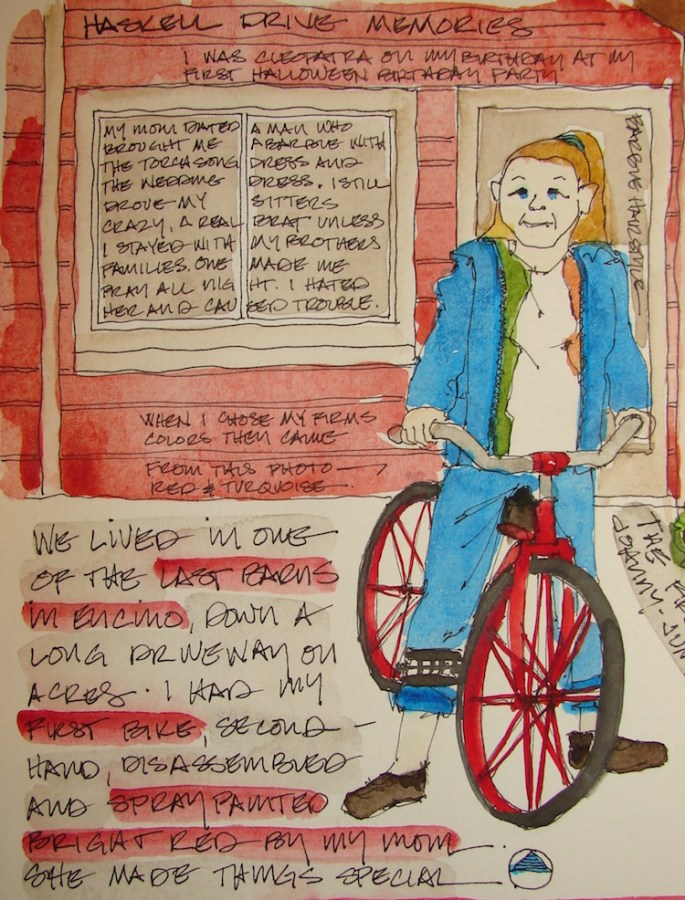 HASKELL DRIVE MEMORIES
I WAS CLEOPATRA ON MY BIRTHDAY AT MY
FIRST HALLOWEEN BIRTHDAY PARTY
MY MOM DATED A MAN WHO
BROUGHT ME A BARBIE WITH
THE TORCH SONG DRESS AND
THE WEDDING DRESS. I STILL
DROVE MY SITTERS
CRAZY, A REAL BRAT UNLESS
I STAYED WITH MY BROTHERS
FAMILIES. ONE MADE ME
PRAY ALL NIGHT. I HATED
HER AND CAUSED TROUBLE.
HAIRSTYLE
WHEN I CHOSE MY FIRMS
COLORS THEY CAME
FROM THIS PHOTO
RED & TURQUOISE
WE LIVED IN ONE
OF THE LAST BARNS
IN ENCINO, DOWN A
LONG DRIVEWAY ON
ACRES. I HAD MY
FIRST BIKE, SECOND-
HAND, DISASSEMBLED
AND SPRAY PAINTED
BRIGHT RED BY MY MOM.
SHE MADE THINGS SPECIAL
THE
JOHNNY-JUN